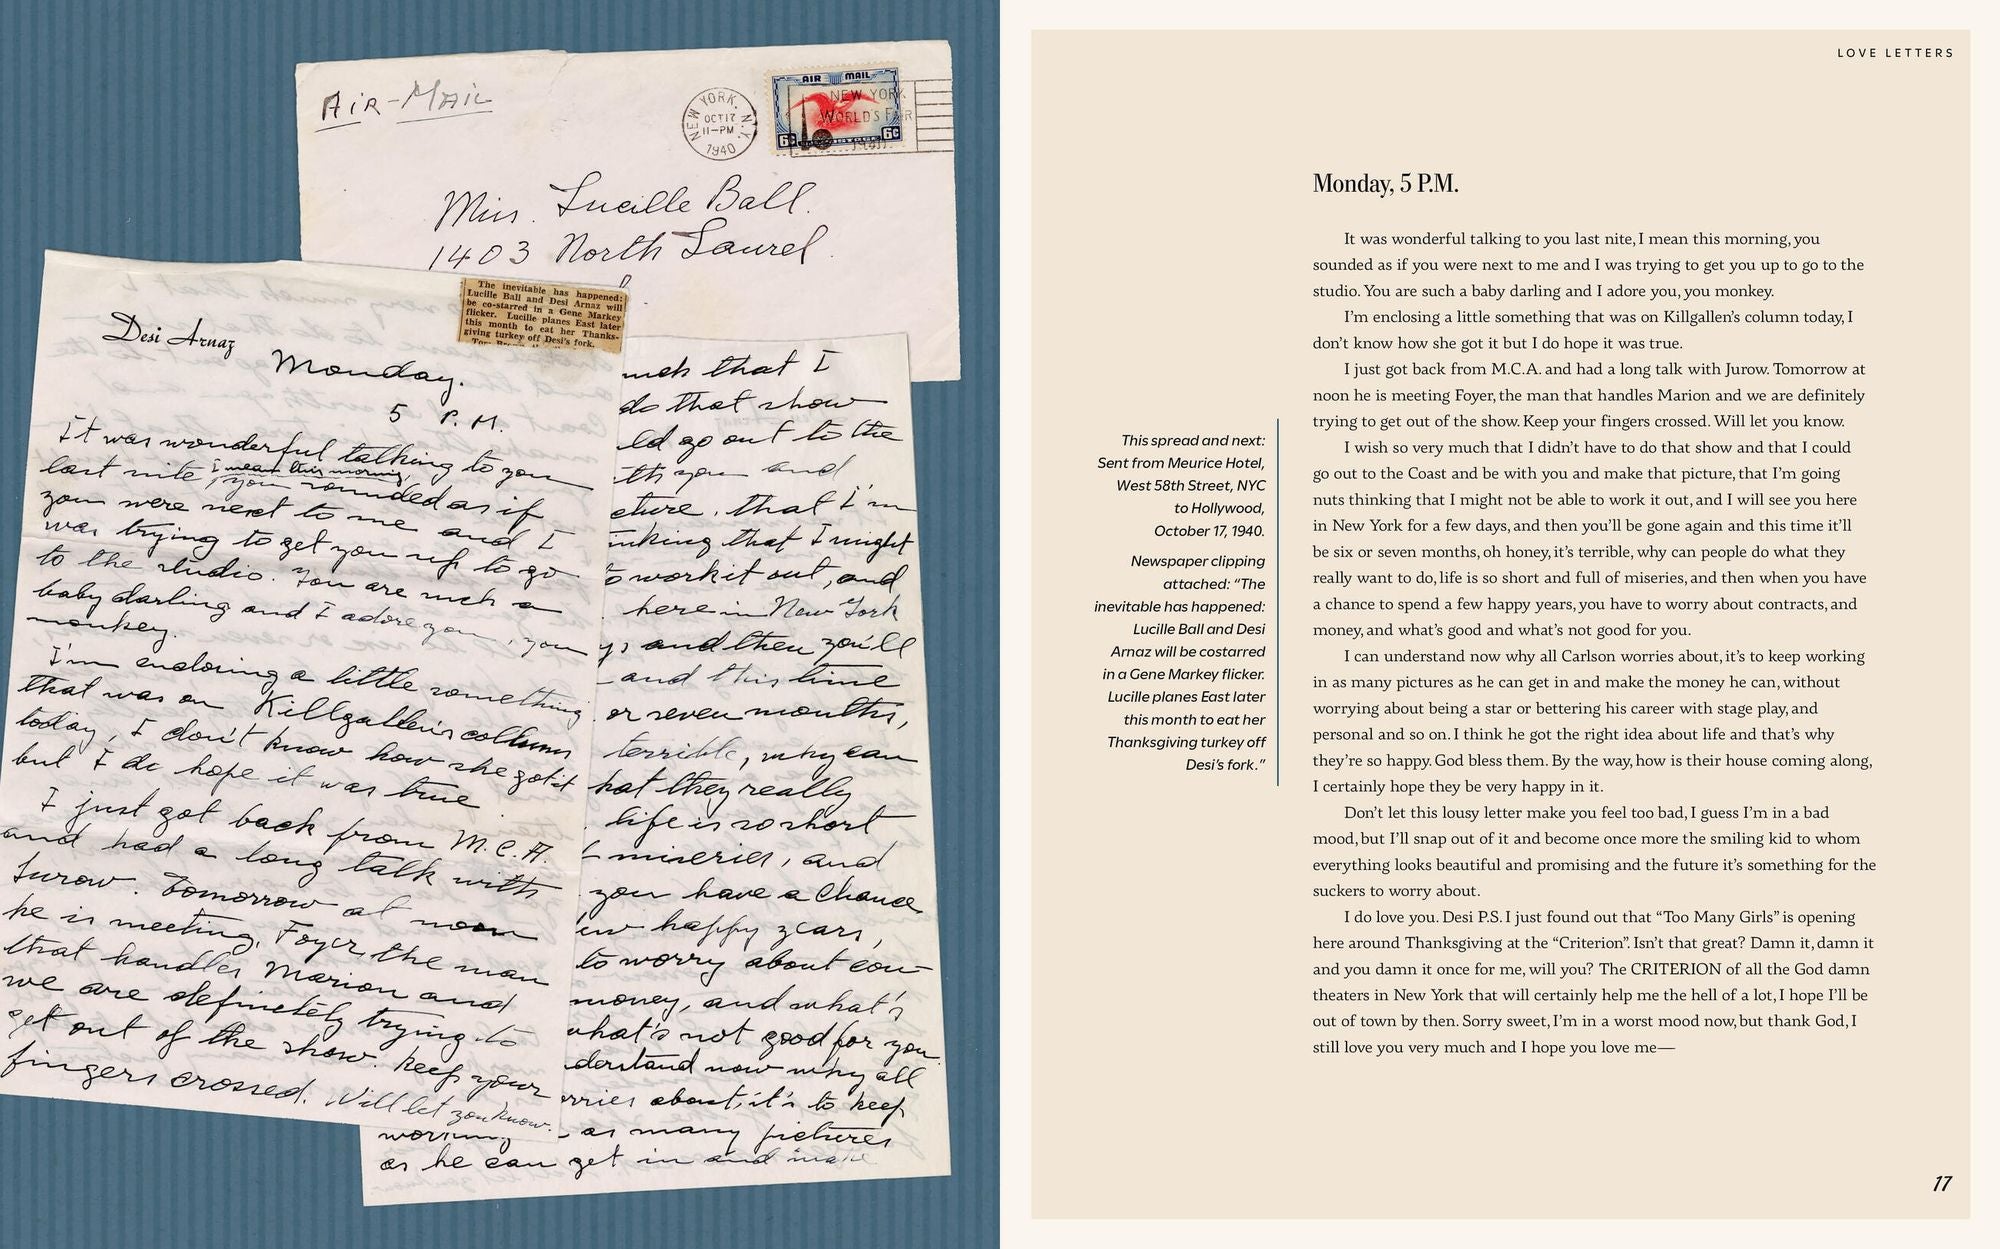 AIR-MAIL
NEW YORK, N.Y.
OCT 17
11-PM
1940
AIR MAIL
NEW YORK
WORLD'S FAIR
1940
6¢ 6¢
Miss. Lucille Ball.
1403 North Laurel.
The inevitable has happened:
Lucille Ball and Desi Arnaz will
be co-starred in a Gene Markey
flicker. Lucille planes East later
this month to eat her Thanks-
giving turkey off Desi's fork.
Desi Arnaz
Monday.
5 P.M.
It was wonderful talking to you
last nite, I mean this morning, you sounded as if
you were next to me and I
was trying to get you up to go
to the studio. You are such a
baby darling and I adore you, you
monkey.
I'm enclosing a little something
that was on Killgallen's collumn
today, I don't know how she got it
but I do hope it was true
I just got back from M.C.A.
and had a long talk with
Jurow. Tomorrow at noon
he is meeting, Foyer the man
that handles Marion and
we are definetely trying to
get out of the show. Keep your
fingers crossed. Will let you know.
much that I
do that show
ld go out to the
th you and
cture, that I'm
inking that I might
to work it out, and
here in New York
ys and then you'll
and this time
or seven months,
terrible, why can
hat they really
life is so short
miseries, and
you have a chance
ew happy years,
to worry about con-
money, and what's
what's not good for you.
derstand now why all
rries about, it's to keep
working as many pictures
as he can get in and make
LOVE LETTERS
Monday, 5 P.M.
It was wonderful talking to you last nite, I mean this morning, you
sounded as if you were next to me and I was trying to get you up to go to the
studio. You are such a baby darling and I adore you, you monkey.
I'm enclosing a little something that was on Killgallen's column today, I
don't know how she got it but I do hope it was true.
I just got back from M.C.A. and had a long talk with Jurow. Tomorrow at
noon he is meeting Foyer, the man that handles Marion and we are definitely
trying to get out of the show. Keep your fingers crossed. Will let you know.
I wish so very much that I didn't have to do that show and that I could
go out to the Coast and be with you and make that picture, that I'm going
nuts thinking that I might not be able to work it out, and I will see you here
in New York for a few days, and then you'll be gone again and this time it'll
be six or seven months, oh honey, it's terrible, why can people do what they
really want to do, life is so short and full of miseries, and then when you have
a chance to spend a few happy years, you have to worry about contracts, and
money, and what's good and what's not good for you.
I can understand now why all Carlson worries about, it's to keep working
in as many pictures as he can get in and make the money he can, without
worrying about being a star or bettering his career with stage play, and
personal and so on. I think he got the right idea about life and that's why
they're so happy. God bless them. By the way, how is their house coming along,
I certainly hope they be very happy in it.
Don't let this lousy letter make you feel too bad, I guess I'm in a bad
mood, but I'll snap out of it and become once more the smiling kid to whom
everything looks beautiful and promising and the future it's something for the
suckers to worry about.
I do love you. Desi P.S. I just found out that “Too Many Girls” is opening
here around Thanksgiving at the “Criterion”. Isn't that great? Damn it, damn it
and you damn it once for me, will you? The CRITERION of all the God damn
theaters in New York that will certainly help me the hell of a lot, I hope I'll be
out of town by then. Sorry sweet, I'm in a worst mood now, but thank God, I
still love you very much and I hope you love me—
This spread and next:
Sent from Meurice Hotel,
West 58th Street, NYC
to Hollywood,
October 17, 1940.
Newspaper clipping
attached: “The
inevitable has happened:
Lucille Ball and Desi
Arnaz will be costarred
in a Gene Markey flicker.
Lucille planes East later
this month to eat her
Thanksgiving turkey off
Desi's fork.”
17